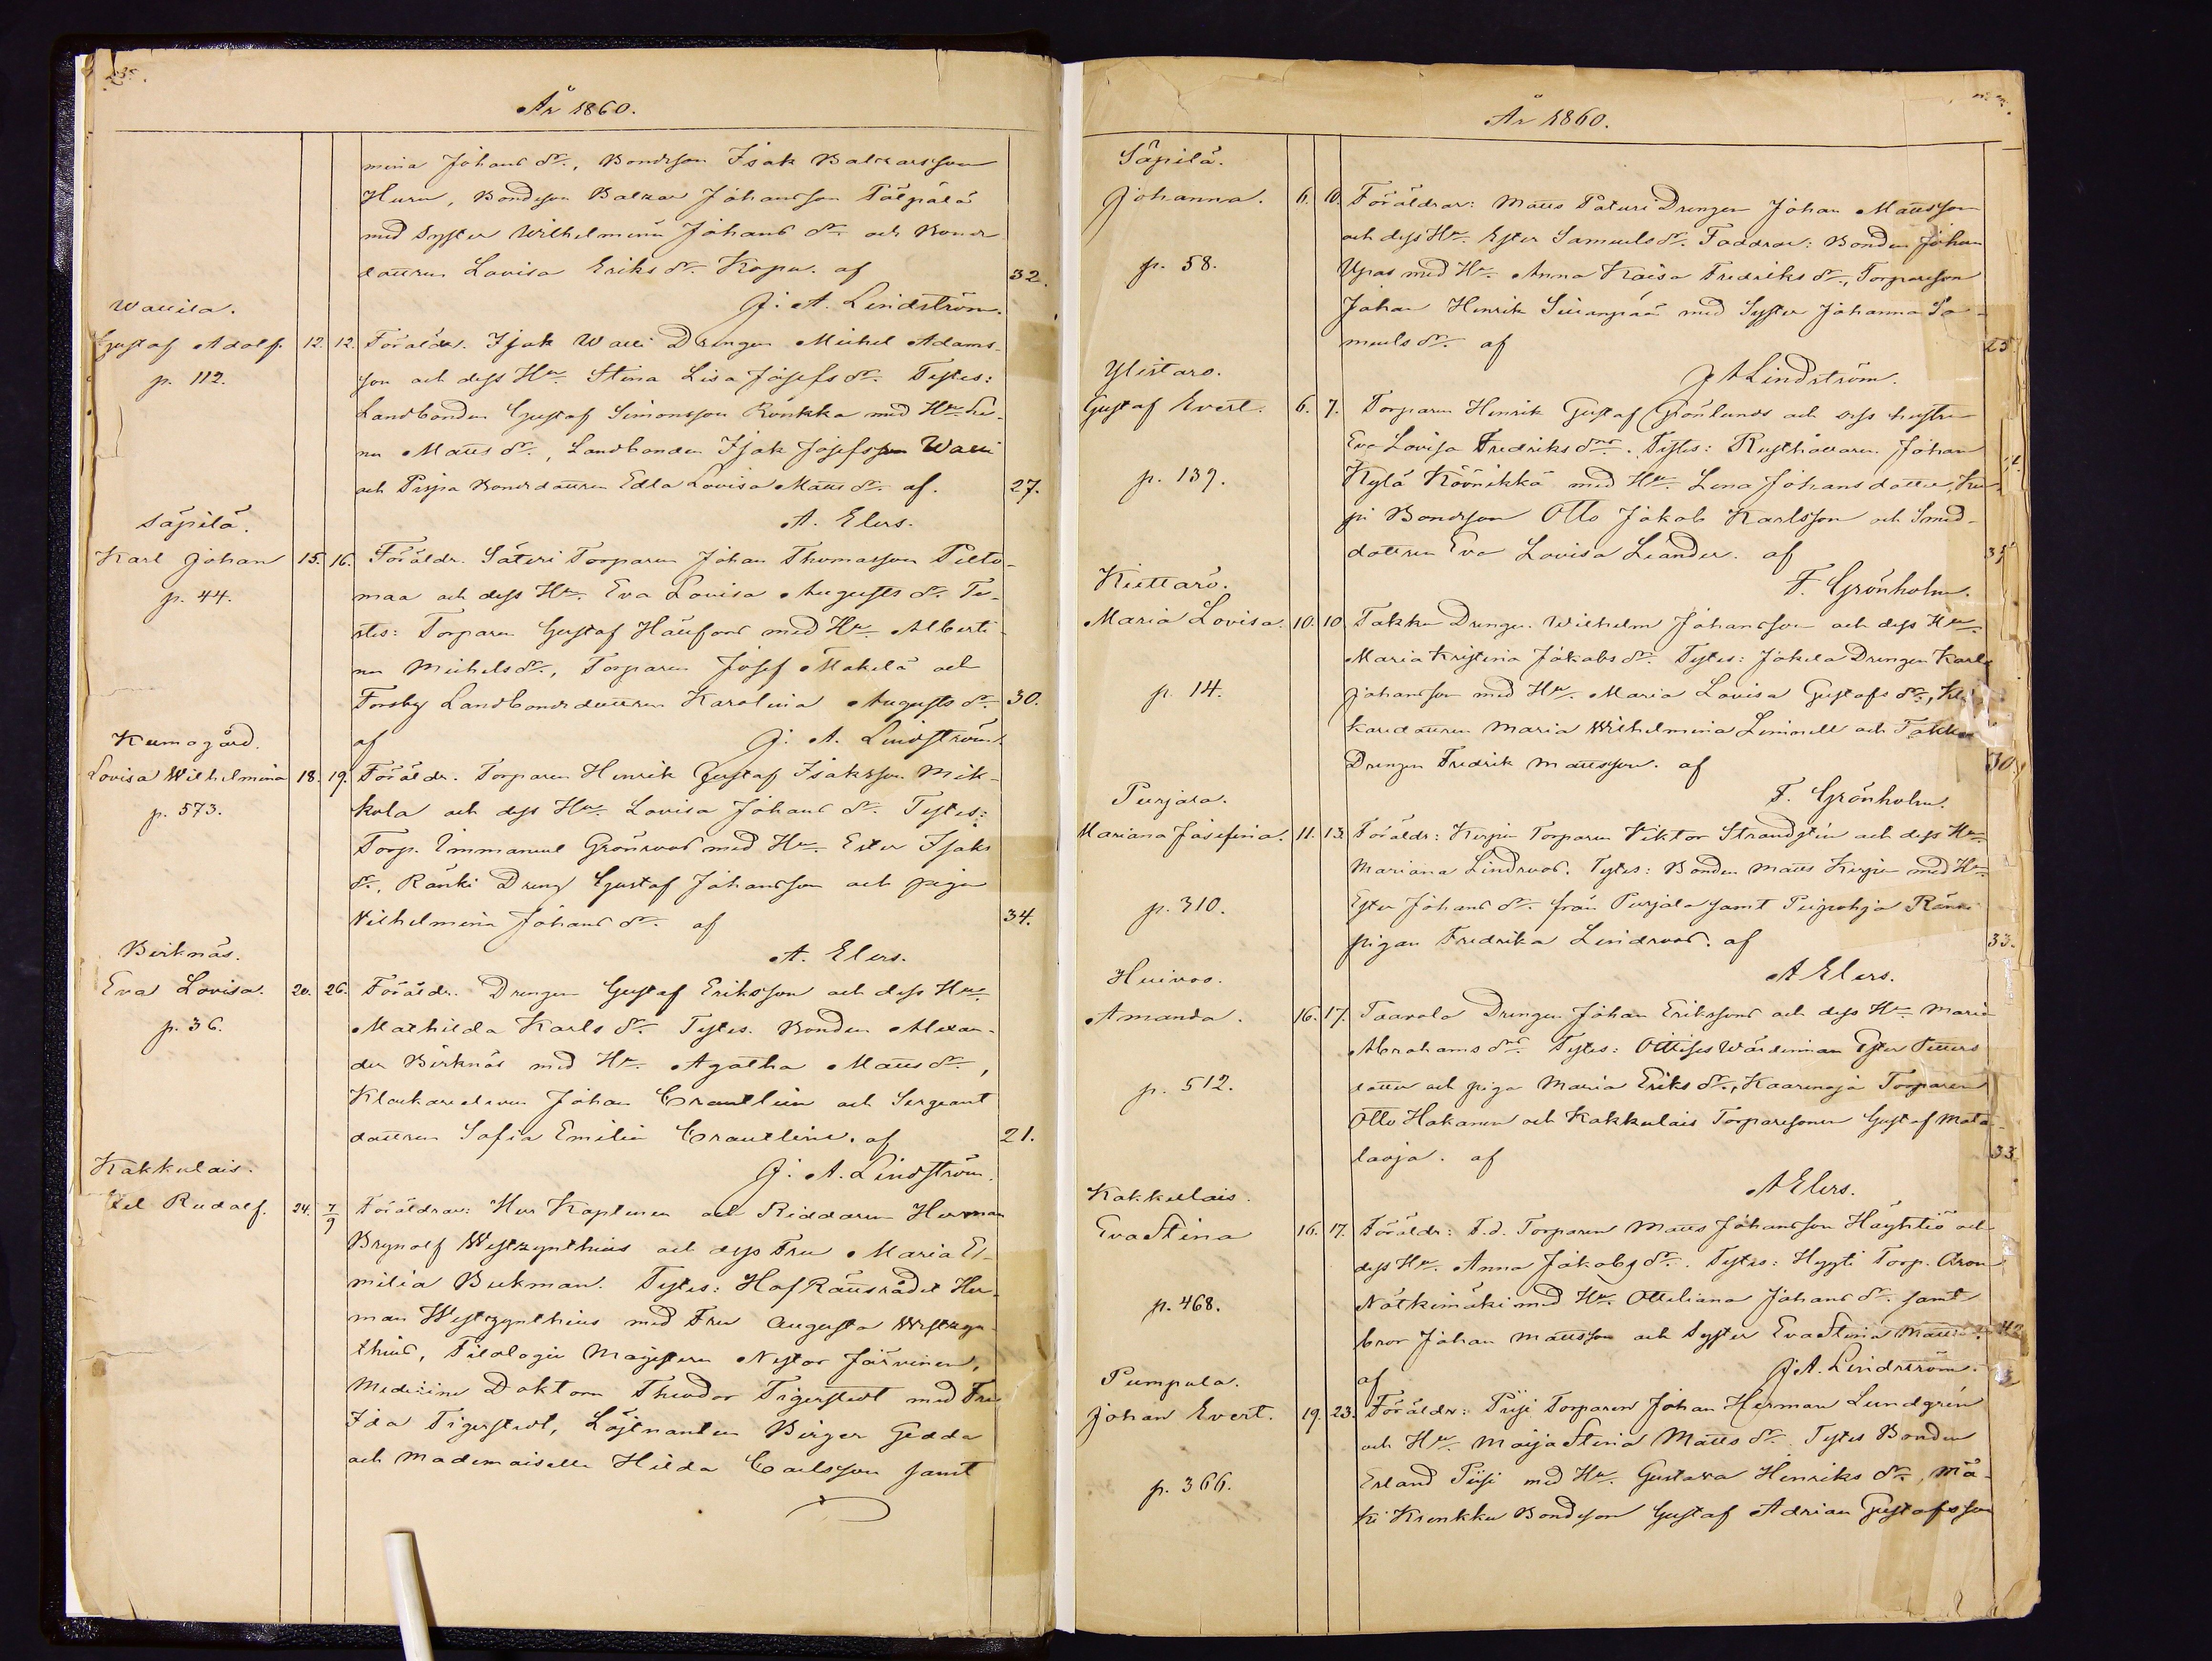 År 1860.
mina Johans dr., Bondeson Isak Balzarsson
Huru, Bondeson Balzar Johansson Pälpälä
med Syster Wilhelmina Johans dr. och Bonde
dottren Lovisa Eriks dr. Kapu. af 32.
J. A. Lindström.
Wallila.
Gustaf Adolf. 12. 12. Föräldr. Isak Walli Drengen Michel Adams-
p. 112. son och dess Hu. Stina Lisa Josefs dr. Testes:
Landbonden Gustaf Simonsson Ronkka med Hu. Lee-
na Matts dr., Landbonden Isak Josefsson Walli
och Pispa Bondedottren Edla Lovisa Matts dr. af. 27.
A. Elers.
Säpilä.
Karl Johan 15. 16. Föräldr. Säteri Torparen Johan Thomasson Pelto-
p. 44. maa och dess Hu. Eva Lovisa Augusts dr. Te-
stes: Torparen Gustaf Häufors med Hu. Alberti-
na Michels dr., Torparen Josef Mäkelä och
Forsby Landbondedottren Karolina Augusts dr. 30.
af J. A. Lindström.
Kumogård.
Lovisa Wilhelmina 18. 19. Föräldr. Torparen Henrik Gustaf Isaksson Mik-
p. 573. kola och dess Hu. Lovisa Johans dr. Testes:
Torp. Immanuel Grönroos med Hu. Ester Isaks
dr., Ränki Dreng Gustaf Johansson och piga
Wilhelmina Johans dr. af 34.
A. Elers.
Birknäs.
Eva Lovisa. 20. 26. Föräldr. Drengen Gustaf Eriksson och dess Hu.
p. 36. Mathilda Karls dr. Testes. Bonden Alexan-
der Birknäs med Hu. Agatha Matts dr.,
Klockareeleven Johan Crantlin och Sergeant
dottren Sofia Emilia Crantline. af 21.
J. A. Lindström.
Kakkulais.
Rudolf. 24. 7/9 Föräldrar: Herr Kaptenen och Riddaren Herman
Brynolf Westzynthius och dess Fru Maria E-
milia Bekman. Testes: Hof Rättsrådet Her-
man Westzynthius med Fru Augusta Westzyn-
thius, Filologie Magistern Nestor Järvinen,
Medicine Doktorn Theodor Tigerstedt med Fru
Ida Tigerstedt, Löjtnanten Birger Gedda
och Mademoiselle Hilda Carlsson samt
År 1860.
Säpilä.
Johanna. 6. 10. Föräldrar: Matts Päturi Drengen Johan Mattsson
och dess Hu. Ester Samuels dr. Faddrar: Bonden Johan
p. 58. Upas med Hu. Anna Kaisa Fredriks dr., Torpareson
Johan Henrik Suianpää med Syster Johanna Sa-
muels dr. af 25
J A Lindström.
Ylistaro.
Gustaf Evert. 6. 7. Torparen Henrik Gustaf Grönlunds och dess hustru
Eva Lovisa Fredriks dr. Testes: Rusthållaren Johan
p. 139. Kylä Köönikkä med Hu. Lena Johans dotter,
Bondeson Otto Jakob Karlsson och Smed-
dottren Eva Lovisa Leander. af 35
F. Grönholm.
Kiettarö.
Maria Lovisa. 10. 10 Takku Drengen Wilhelm Johansson och dess Hu.
Maria Kristina Jakobs dr. Testes: Jakela Drengen Karl
p. 14. Johansson med Hu. Maria Lovisa Gustafs dr., Kloc
karedottren Maria Wilhelmina Liminell och Takku
Drengen Fredrik Mattsson. af 30.
F. Grönholm.
Purjala.
Mariana Josefina. 11. 13. Föräldr: Kirpin Torparen Viktor Strandstén och dess Hu.
Mariana Lindroos. Testes: Bonden Matts Kirpi med Hu.
p. 310. Ester Johans dr. från Purjala samt Peipohja Ränki
pigan Fredrika Lindroos. af 33.
A Elers.
Huivoo.
Amanda. 16. 17. Taavola Drengen Johan Erikssons och dess Hu. Maria
Abrahams dr. Testes: Ottises Wärdinnan Ester Petters
p. 512. dotter och piga Maria Eriks dr., Kaarenoja Torparen
Otto Hakanen och Kakkulais Torparesonen Gustaf Mata-
laoja. af 33.
A Elers.
Kakkulais.
Eva Stina 16. 17. Föräldr: F.d. Torparen Matts Johansson Häyhtiö och
dess Hu. Anna Jakobs dr. Testes: Hyyti Torp. Aron
p. 468. Nätkinmäki med Hu. Otteliana Johans dr. samt
bror Johan Mattsson och Syster Eva Stina Matts
af J. A. Lindström.
Pumpula.
Johan Evert. 19. 23. Föräldr: Piisi Torparen Johan Herman Lundgrén
och Hu. Maija Stina Matts dr. Testes Bonden
p. 366. Erland Piisi med Hu. Gustava Henriks dr., Mä-
ki Krenkku Bondeson Gustaf Adrian Gustafsson